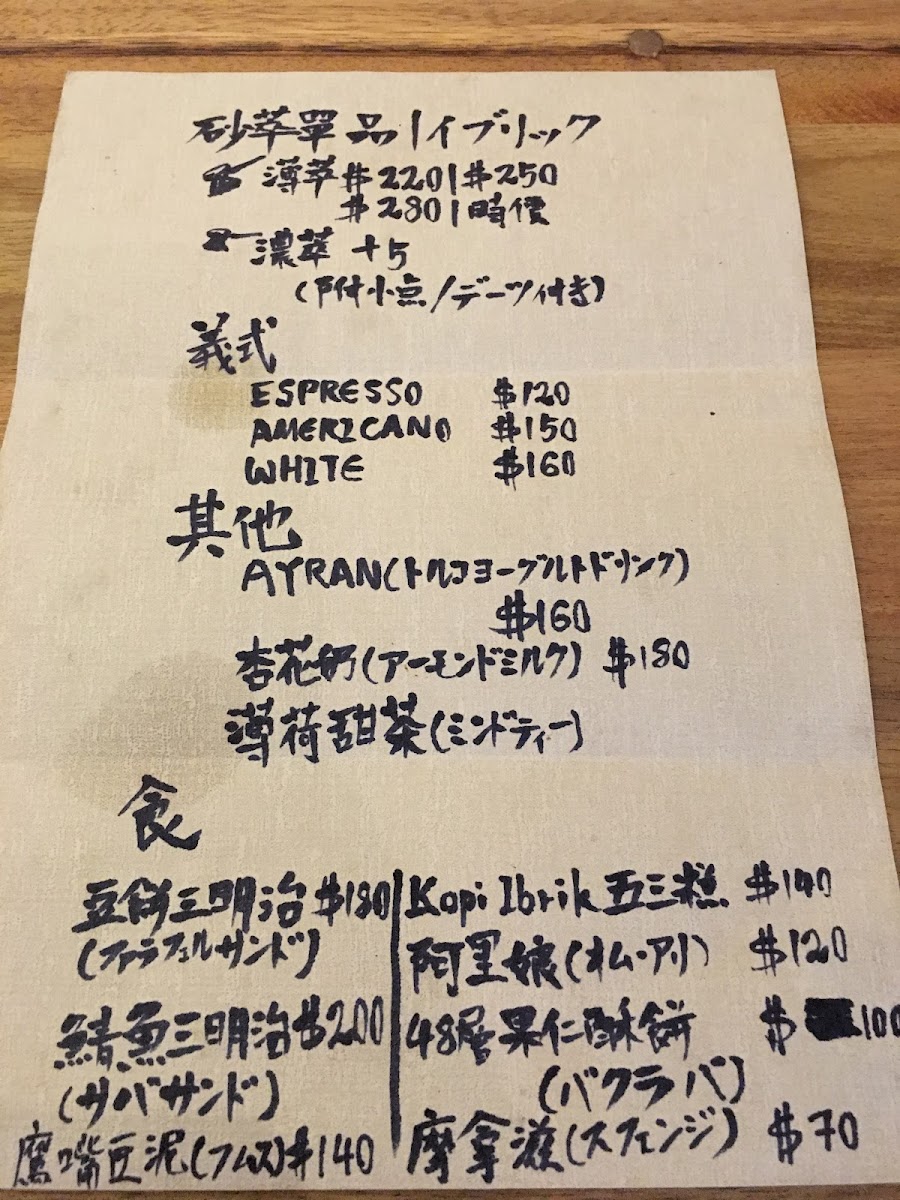 砂萃單品 | イブリック
薄萃 $220 | $250
$280 | 時價
濃萃 +5
(附小点/デーツ付き)
義式
ESPRESSO $120
AMERICANO $150
WHITE $160
其他
AYRAN(トルコヨーグルトドリンク)
$160
杏花奶(アーモンドミルク) $180
薄荷甜茶(ミンドティー)
食
豆餅三明治 $180
(ファラフェルサンド)
鯖魚三明治 $200
(サバサンド)
鷹嘴豆泥(フムス) $140
Kopi Ibrik 五三糕 $140
阿里娘(オム・アリ) $120
48層果仁酥餅 $100
(バクラバ)
摩拿滋(スフェンジ) $70